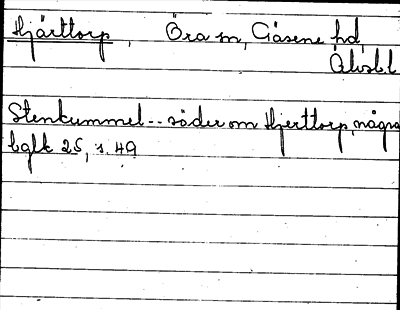 Hjärttorp, Öra sn, Gäsene hd,
Älvsb.l
Stenkummel -- söder om Hjerttorp, några
bglk 25, s. 49